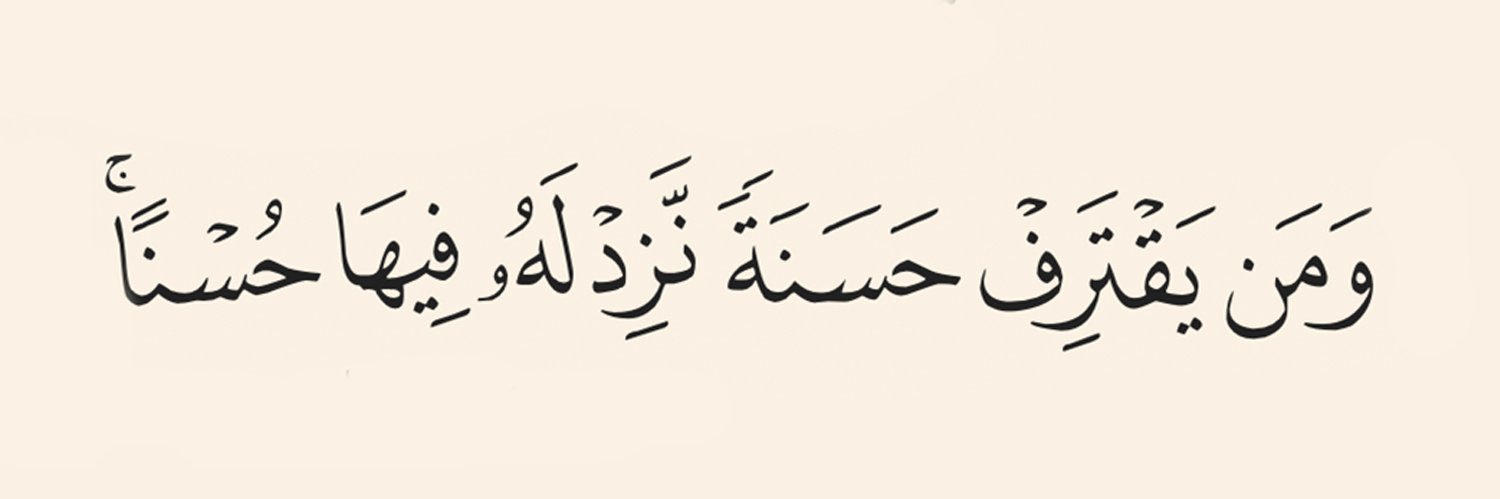 وَمَن يَقۡتَرِفۡ حَسَنَةٗ نَّزِدۡ لَهُۥ فِيهَا حُسۡنًاۚ